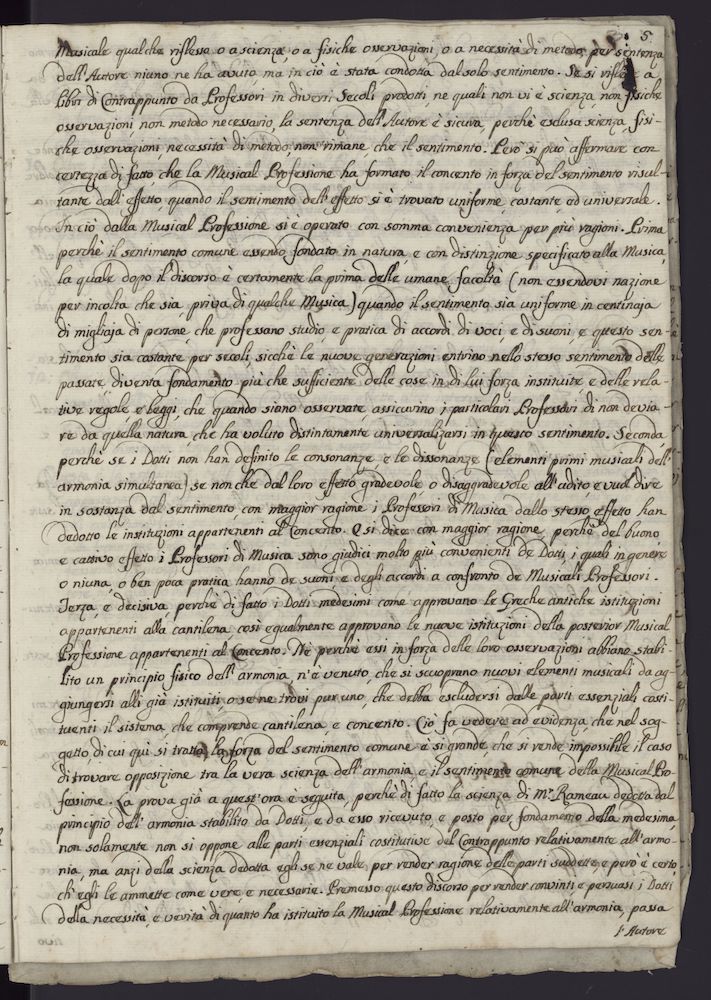 5
Musicale qualche riflesso o a scienza, o a fisiche osservazioni, o a necessità di metodo, per sentenza
dell'Autore niuno ne ha avuto, ma in ciò è stata condotta dal solo sentimento. Se si riflette a
libri di Contrappunto da Professori in diversi Secoli prodotti, ne quali non vi è scienza, non fisiche
osservazioni, non metodo necessario, la sentenza dell'Autore è sicura, perchè esclusa scienza, fisi-
che osservazioni, necessità di metodo, non rimane che il sentimento. Però si può affermare con
certezza di fatto che la Musical Professione ha formato il concento in forza del sentimento risul-
tante dall'effetto, quando il sentimento dell'effetto si è trovato uniforme, costante, ed universale.
In ciò dalla Musical Professione si è operato con somma convenienza per più ragioni. Prima
perchè il sentimento comune essendo fondato in natura, e con distinzione specificato alla Musica,
la quale dopo il discorso è certamente la prima delle umane facoltà (non essendovi nazione
per incolta che sia, priva di qualche Musica) quando il sentimento sia uniforme in centinaja
di migliaja di persone, che professano studio, e pratica di accordi di voci, e di suoni, e questo sen-
timento sia costante per secoli, sicchè le nuove generazioni entrino nello stesso sentimento delle
passate, diventa fondamento più che sufficiente delle cose in di lui forza instituite, e delle rela-
tive regole, e leggi, che quando siano osservate assicurino i particolari Professori di non devia-
re da quella natura, che ha voluto distintamente universalizarsi in questo sentimento. Seconda
perchè se i Dotti non han definito le consonanze, e le dissonanze (elementi primi musicali dell'
armonia simultanea) se non che dal loro effetto gradevole, o disaggradevole all'udito, e vuol dire
in sostanza dal sentimento, con maggior ragione i Professori di Musica dallo stesso effetto han
dedotto le instituzioni appartenenti al Concento. E si dice con maggior ragione, perchè del buono,
e cattivo effetto i Professori di Musica sono giudici molto più convenienti de Dotti, i quali in genere
o niuna, o ben poca pratica hanno de suoni, e degli accordi a confronto de Musicali Professori.
Terza, e decisiva, perchè di fatto i Dotti medesimi come approvano le Greche antiche istituzioni
appartenenti alla cantilena, così egualmente approvano le nuove istituzioni della posterior Musical
Professione appartenenti al Concento. Nè perchè essi in forza delle loro osservazioni abbiano stabi-
lito un principio fisico dell'armonia, n'è venuto, che si scuoprano nuovi elementi musicali da ag-
giungersi alli già istituiti, o se ne trovi pur uno, che debba escludersi dalle parti essenziali costi-
tuenti il sistema, che comprende cantilena, e concento. Ciò fa vedere ad evidenza, che nel sog-
getto di cui qui si tratta, la forza del sentimento comune è si grande, che si rende impossibile il caso
di trovare opposizione tra la vera scienza dell'armonia, e il sentimento comune della Musical Pro-
fessione. La prova già a quest'ora è seguita, perchè di fatto la scienza di Mr. Rameau dedotta dal
principio dell'armonia stabilito da Dotti, e da esso ricevuto, e posto per fondamento della medesima,
non solamente non si oppone alle parti essenziali costitutive del Contrappunto relativamente all'armo-
nia, ma anzi della scienza dedotta egli se ne vale per render ragione delle parti suddette, e però è certo,
ch'egli le ammette come vere, e necessarie. Premesso questo discorso per render convinti, e persuasi i Dotti
della necessità, e verità di quanto ha istituito la Musical Professione relativamente all'armonia, passa
l'Autore